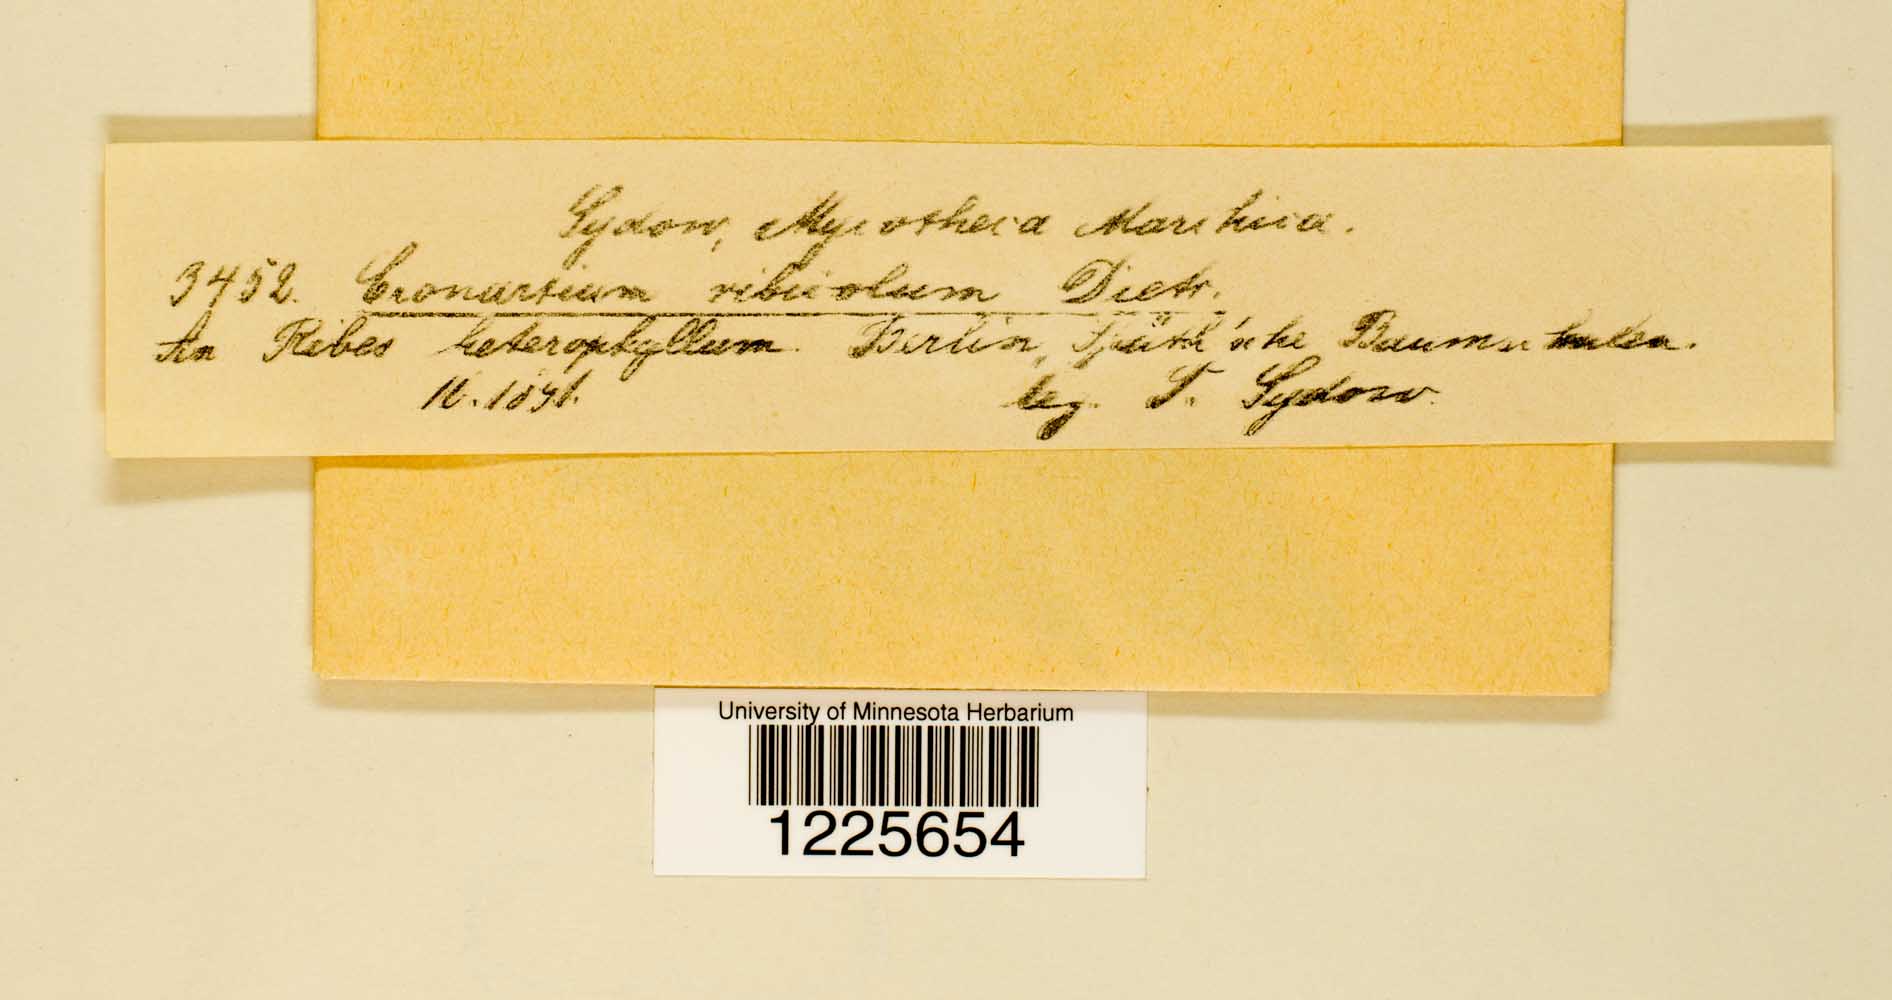 Sydow, Mycotheca Marchica.
3452. Cronartium ribicolum Dietr.
An Ribes heterophyllum. Berlin, Späth'sche Baumschulen.
1891. leg. P. Sydow.
University of Minnesota Herbarium
1225654